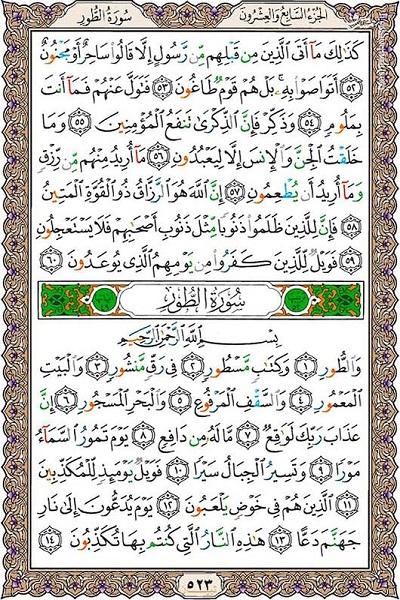 الجزء السابع والعشرون
سورة الطور
كَذَٰلِكَ مَا أَتَى الَّذِينَ مِن قَبْلِهِم مِّن رَّسُولٍ إِلَّا قَالُوا سَاحِرٌ أَوْ مَجْنُونٌ
﴿٥٢﴾ أَتَوَاصَوْا بِهِ ۚ بَلْ هُمْ قَوْمٌ طَاغُونَ ﴿٥٣﴾ فَتَوَلَّ عَنْهُمْ فَمَا أَنتَ
بِمَلُومٍ ﴿٥٤﴾ وَذَكِّرْ فَإِنَّ الذِّكْرَىٰ تَنفَعُ الْمُؤْمِنِينَ ﴿٥٥﴾ وَمَا
خَلَقْتُ الْجِنَّ وَالْإِنسَ إِلَّا لِيَعْبُدُونِ ﴿٥٦﴾ مَا أُرِيدُ مِنْهُم مِّن رِّزْقٍ
وَمَا أُرِيدُ أَن يُطْعِمُونِ ﴿٥٧﴾ إِنَّ اللَّهَ هُوَ الرَّزَّاقُ ذُو الْقُوَّةِ الْمَتِينُ
﴿٥٨﴾ فَإِنَّ لِلَّذِينَ ظَلَمُوا ذَنُوبًا مِّثْلَ ذَنُوبِ أَصْحَابِهِمْ فَلَا يَسْتَعْجِلُونِ
﴿٥٩﴾ فَوَيْلٌ لِّلَّذِينَ كَفَرُوا مِن يَوْمِهِمُ الَّذِي يُوعَدُونَ ﴿٦٠﴾
سُورَةُ الطُّورِ
بِسْمِ اللَّهِ الرَّحْمَٰنِ الرَّحِيمِ
وَالطُّورِ ﴿١﴾ وَكِتَابٍ مَّسْطُورٍ ﴿٢﴾ فِي رَقٍّ مَّنشُورٍ ﴿٣﴾ وَالْبَيْتِ
الْمَعْمُورِ ﴿٤﴾ وَالسَّقْفِ الْمَرْفُوعِ ﴿٥﴾ وَالْبَحْرِ الْمَسْجُورِ ﴿٦﴾ إِنَّ
عَذَابَ رَبِّكَ لَوَاقِعٌ ﴿٧﴾ مَّا لَهُ مِن دَافِعٍ ﴿٨﴾ يَوْمَ تَمُورُ السَّمَاءُ
مَوْرًا ﴿٩﴾ وَتَسِيرُ الْجِبَالُ سَيْرًا ﴿١٠﴾ فَوَيْلٌ يَوْمَئِذٍ لِّلْمُكَذِّبِينَ
﴿١١﴾ الَّذِينَ هُمْ فِي خَوْضٍ يَلْعَبُونَ ﴿١٢﴾ يَوْمَ يُدَعُّونَ إِلَىٰ نَارِ
جَهَنَّمَ دَعًّا ﴿١٣﴾ هَٰذِهِ النَّارُ الَّتِي كُنتُم بِهَا تُكَذِّبُونَ ﴿١٤﴾
٥٢٣